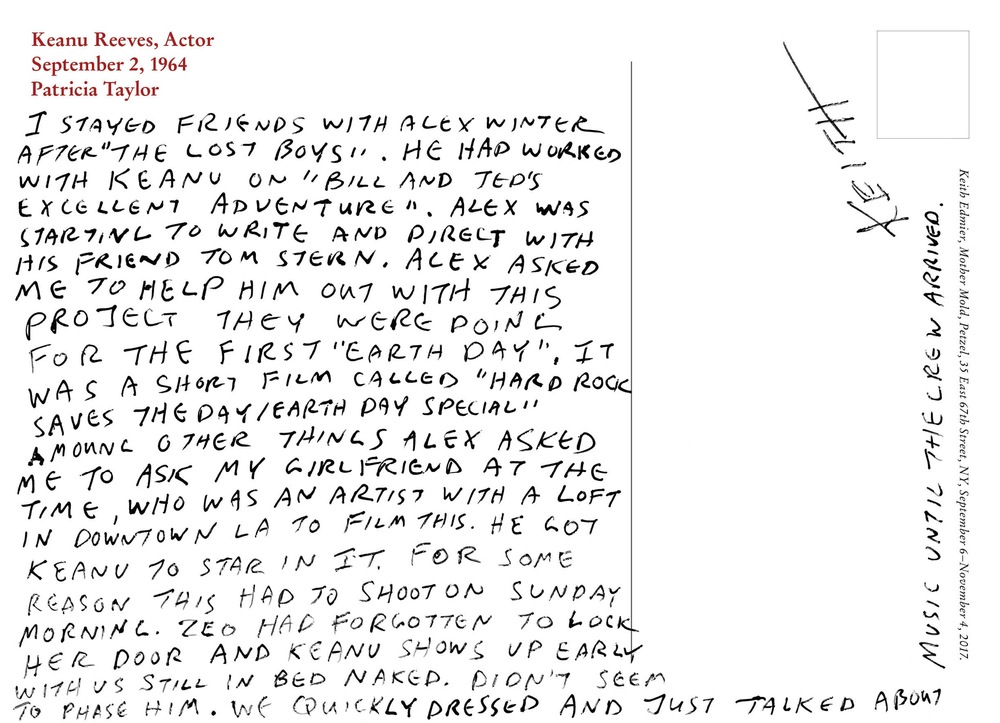 Keanu Reeves, Actor
September 2, 1964
Patricia Taylor
I STAYED FRIENDS WITH ALEX WINTER
AFTER "THE LOST BOYS". HE HAD WORKED
WITH KEANU ON "BILL AND TED'S
EXCELLENT ADVENTURE". ALEX WAS
STARTING TO WRITE AND DIRECT WITH
HIS FRIEND TOM STERN. ALEX ASKED
ME TO HELP HIM OUT WITH THIS
PROJECT THEY WERE DOING
FOR THE FIRST "EARTH DAY". IT
WAS A SHORT FILM CALLED "HARD ROCK
SAVES THE DAY/EARTH DAY SPECIAL"
AMOUNG OTHER THINGS ALEX ASKED
ME TO ASK MY GIRLFRIEND AT THE
TIME, WHO WAS AN ARTIST WITH A LOFT
IN DOWNTOWN LA TO FILM THIS. HE GOT
KEANU TO STAR IN IT. FOR SOME
REASON THIS HAD TO SHOOT ON SUNDAY
MORNING. ZEO HAD FORGOTTEN TO LOCK
HER DOOR AND KEANU SHOWS UP EARLY
WITH US STILL IN BED NAKED. DIDN'T SEEM
TO PHASE HIM. WE QUICKLY DRESSED AND JUST TALKED ABOUT
MUSIC UNTIL THE CREW ARRIVED.
KEITH
Keith Edmier, Mother Mold, Petzel, 35 East 67th Street, NY, September 6–November 4, 2017.